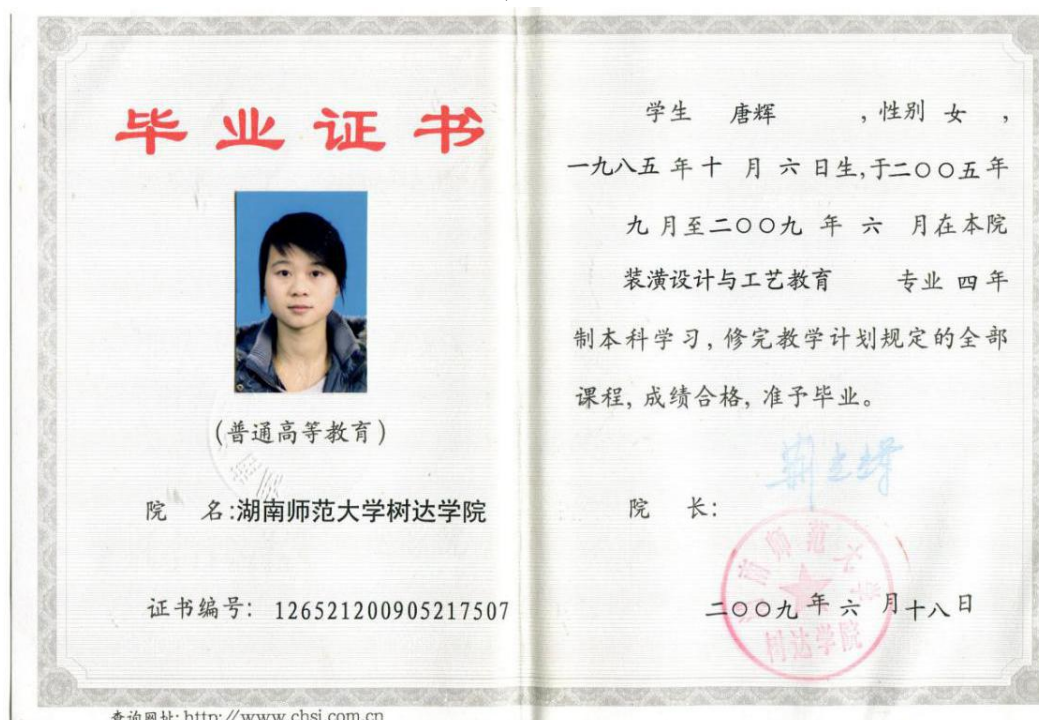 毕业证书
(普通高等教育)
院 名:湖南师范大学树达学院
证书编号: 126521200905217507
查询网址: http://www.chsi.com.cn
学生 唐辉 , 性别 女 ,
一九八五 年 十 月 六 日生,于二〇〇五年
九 月至二〇〇九 年 六 月在本院
装潢设计与工艺教育 专业 四 年
制本科学习, 修完教学计划规定的全部
课程, 成绩合格, 准予毕业。
院 长:
湖南师范大学
树达学院
二〇〇九 年 六 月十八日